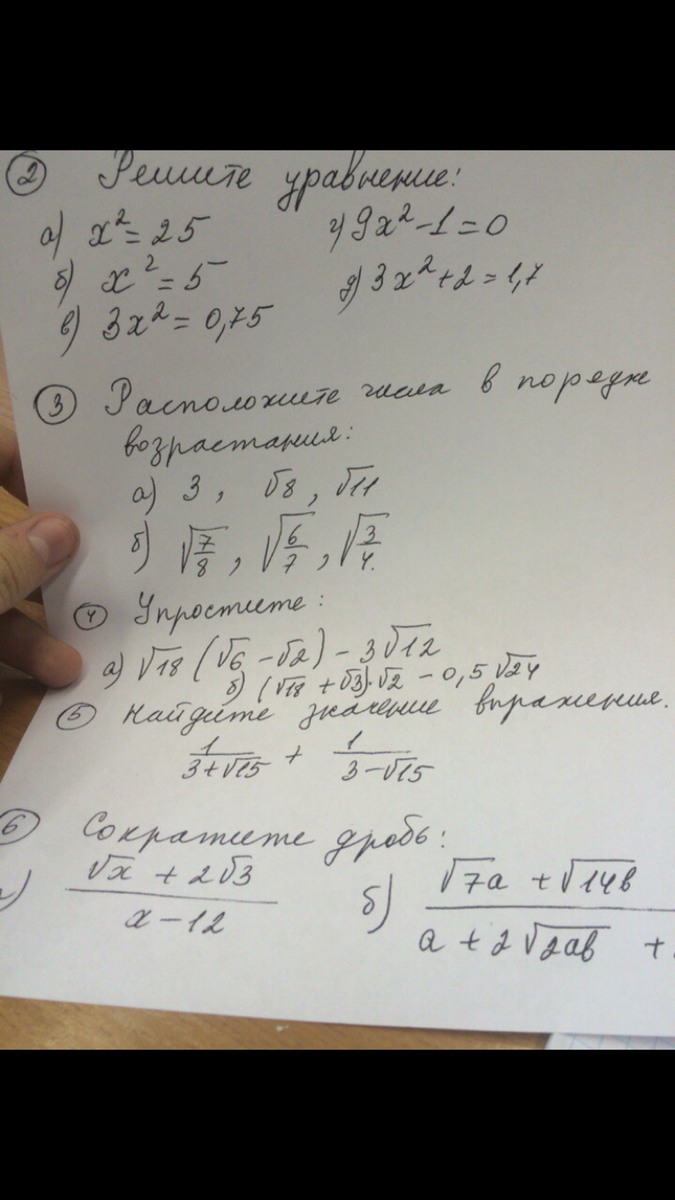 ② Решите уравнение:
а) x² = 25 г) 9x² - 1 = 0
б) x² = 5 д) 3x² + 2 = 1,7
в) 3x² = 0,75
③ Расположите числа в порядке
возрастания:
а) 3, √8, √11
б) √(7/8), √(6/7), √(3/4)
④ Упростите:
а) √18 (√6 - √2) - 3√12
б) (√18 + √3)·√2 - 0,5√24
⑤ Найдите значение выражения.
1/(3+√15) + 1/(3-√15)
⑥ Сократите дробь:
а) (√x + 2√3)/(x - 12) б) (√7a + √14b)/(a + 2√2ab +